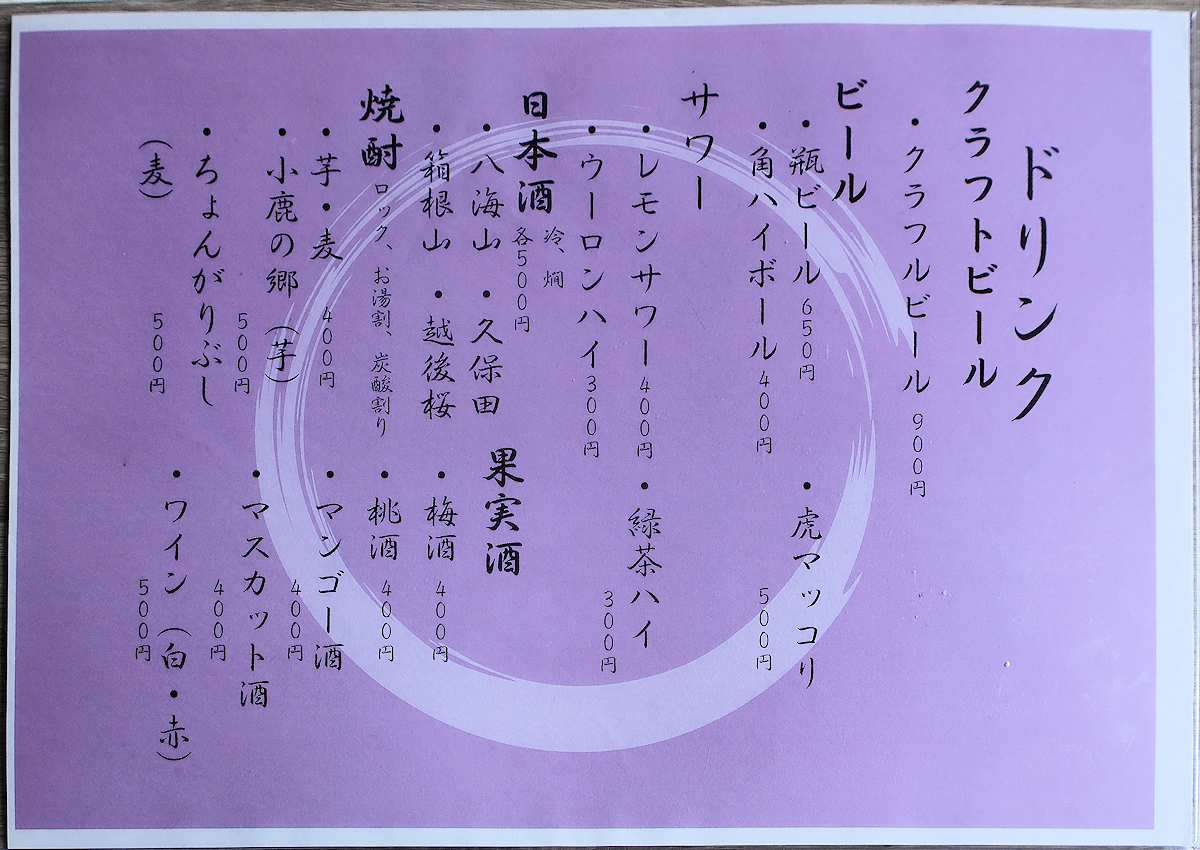 ドリンク
クラフトビール
・クラフルビール 900円
ビール
・瓶ビール 650円
・虎マッコリ 500円
・角ハイボール 400円
サワー
・レモンサワー 400円
・緑茶ハイ 300円
・ウーロンハイ 300円
日本酒 冷、燗 各500円
・八海山 ・久保田
・箱根山 ・越後桜
焼酎 ロック、お湯割、炭酸割り
・芋・麦 400円
・小鹿の郷(芋) 500円
・ちょんがりぶし(麦) 500円
果実酒
・梅酒 400円
・桃酒 400円
・マンゴー酒 400円
・マスカット酒 400円
・ワイン(白・赤) 500円